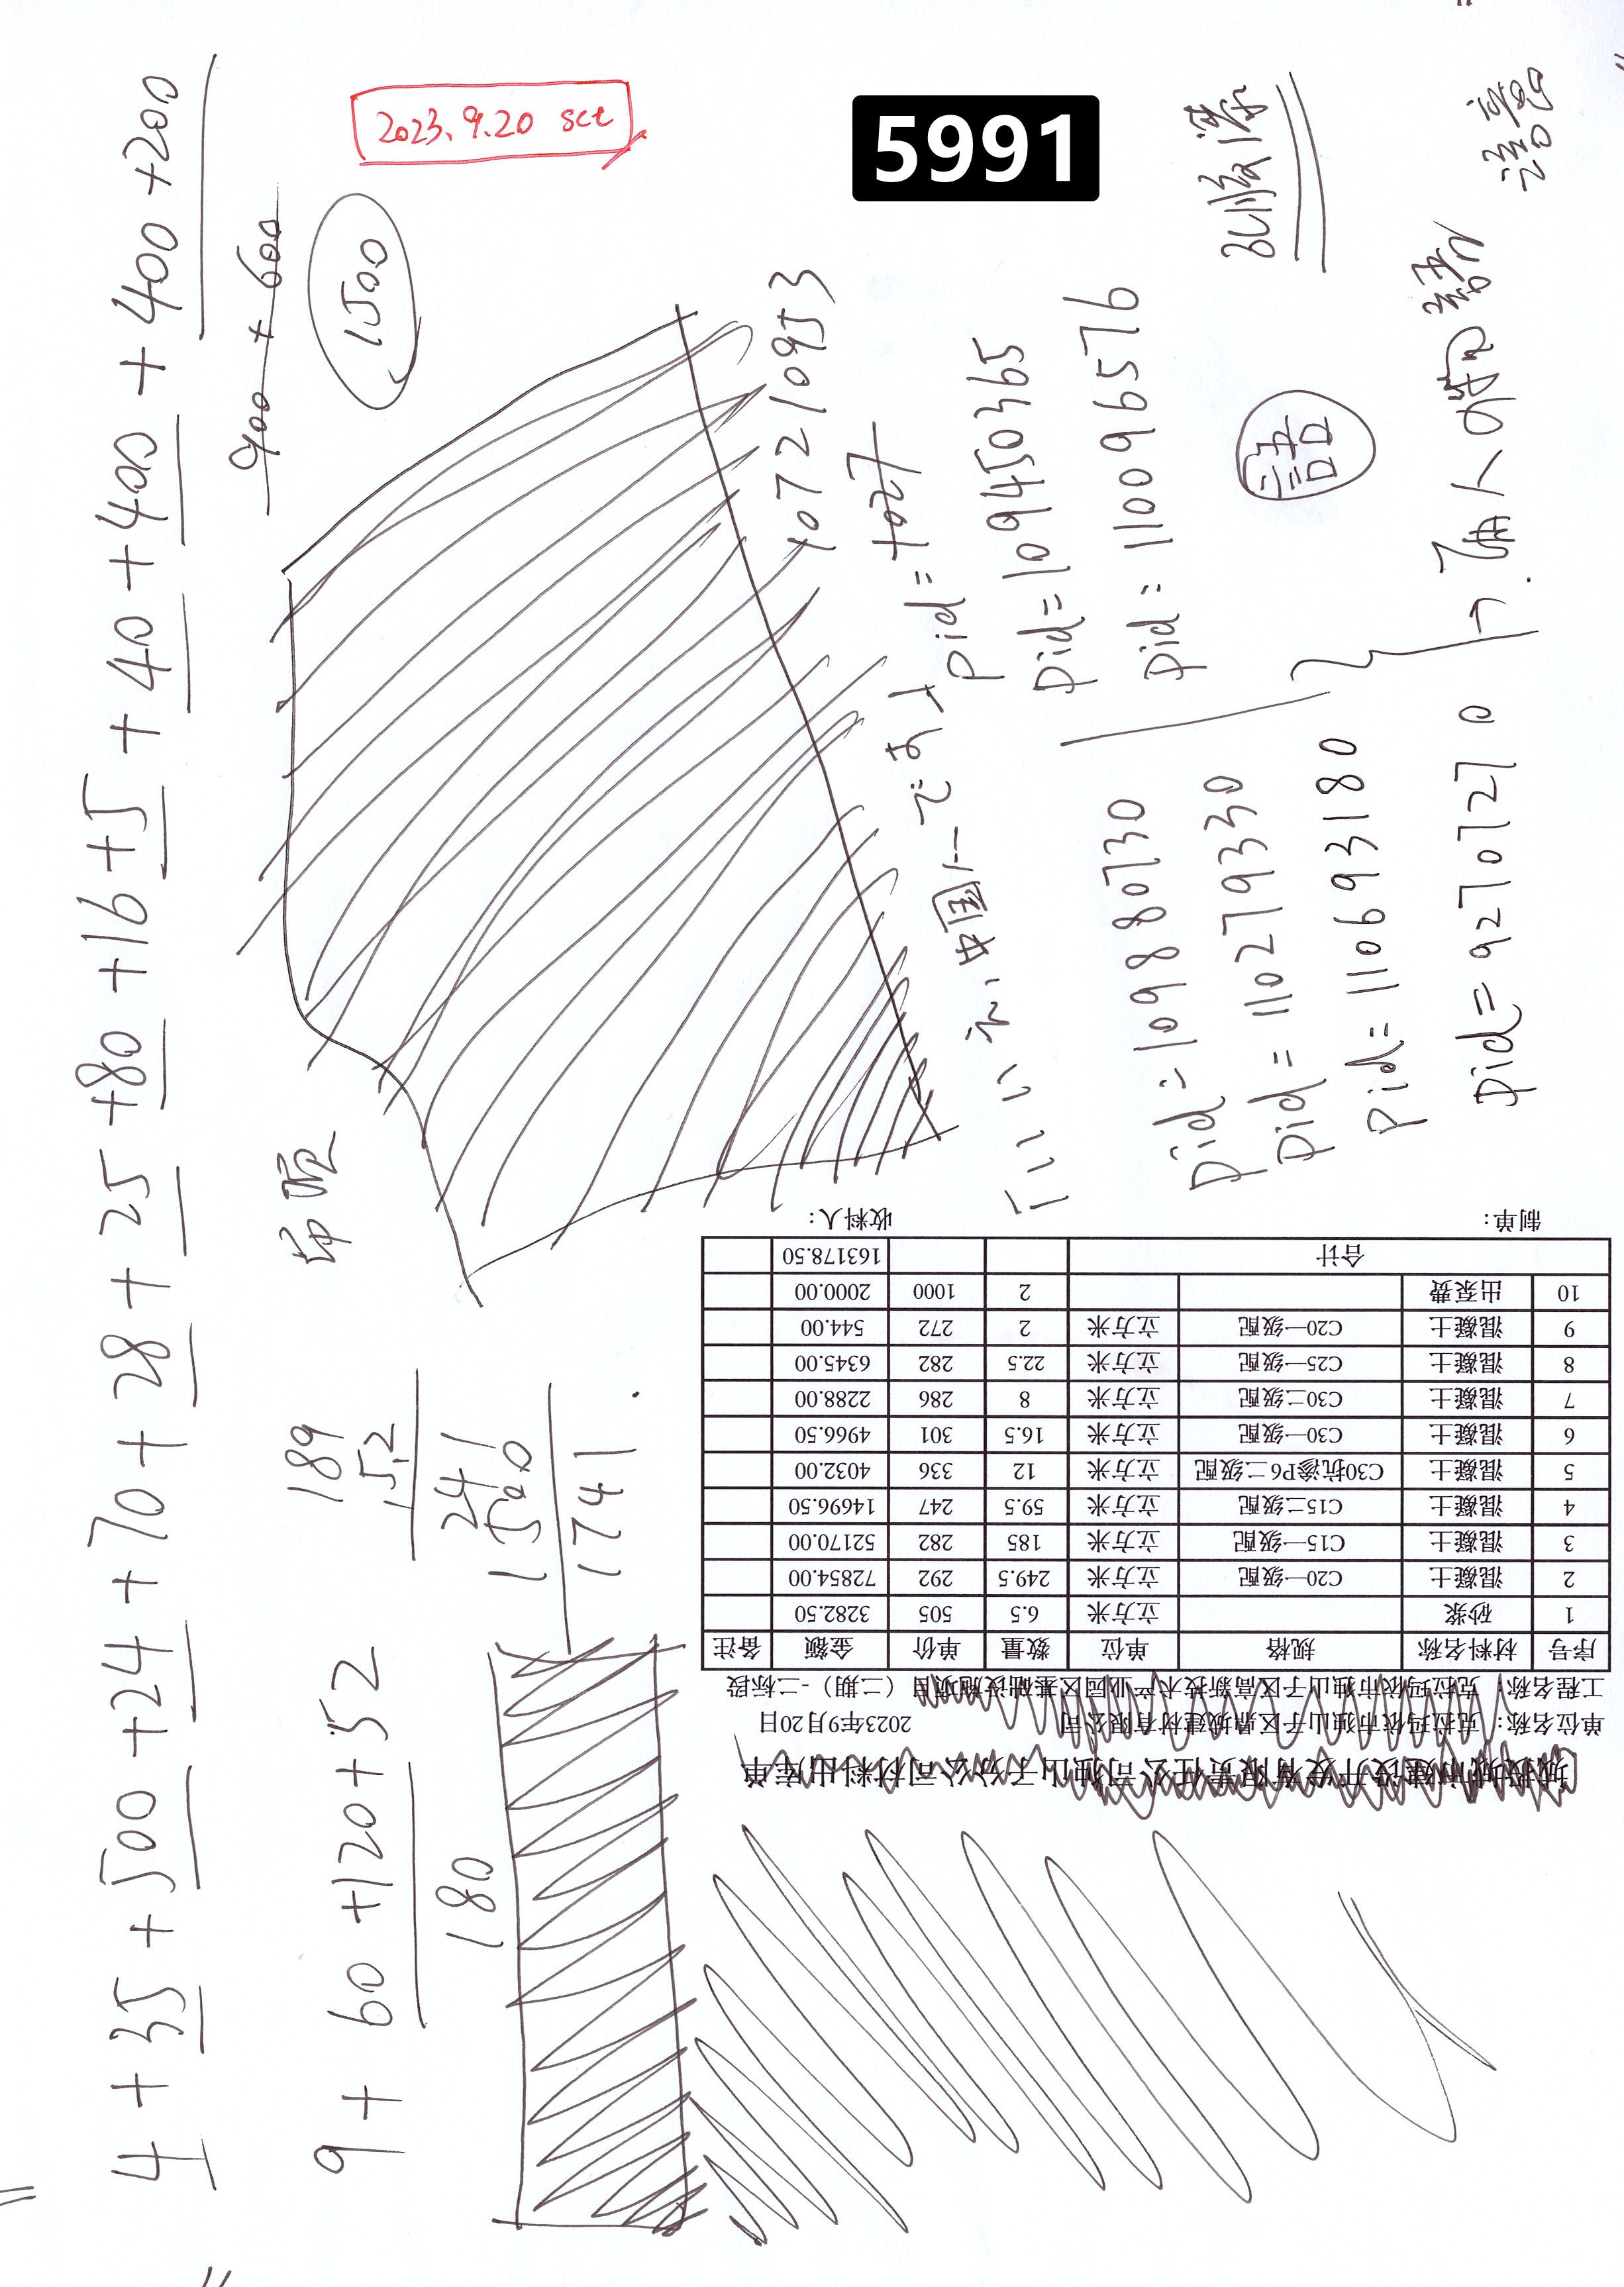 2023.9.20 sct
5991
4+35+500+24+70+28+25+80+16+5+40+400+400+200
900+600
1500
9+60+120+52
180
189
52
241
1500
1741.
10721093
pid=1027
pid=109450465
pid=110096576
pid=109880730
pid=110279330
pid=110693180
pid=92707270
語
城投城市建设开发有限责任公司独山子分公司材料出库单
单位名称：克拉玛依市独山子区鼎城建材有限公司 2023年9月20日
工程名称：克拉玛依市独山子区高新技术产业园区基础设施项目（二期）-二标段
序号 材料名称 规格 单位 数量 单价 金额 备注
1 砂浆 立方米 6.5 505 3282.50
2 混凝土 C20一级配 立方米 249.5 292 72854.00
3 混凝土 C15一级配 立方米 185 282 52170.00
4 混凝土 C15二级配 立方米 59.5 247 14696.50
5 混凝土 C30抗渗P6二级配 立方米 12 336 4032.00
6 混凝土 C30一级配 立方米 16.5 301 4966.50
7 混凝土 C30二级配 立方米 8 286 2288.00
8 混凝土 C25一级配 立方米 22.5 282 6345.00
9 混凝土 C20一级配 立方米 2 272 544.00
10 出泵费 2 1000 2000.00
合计 163178.50
制单： 收料人：